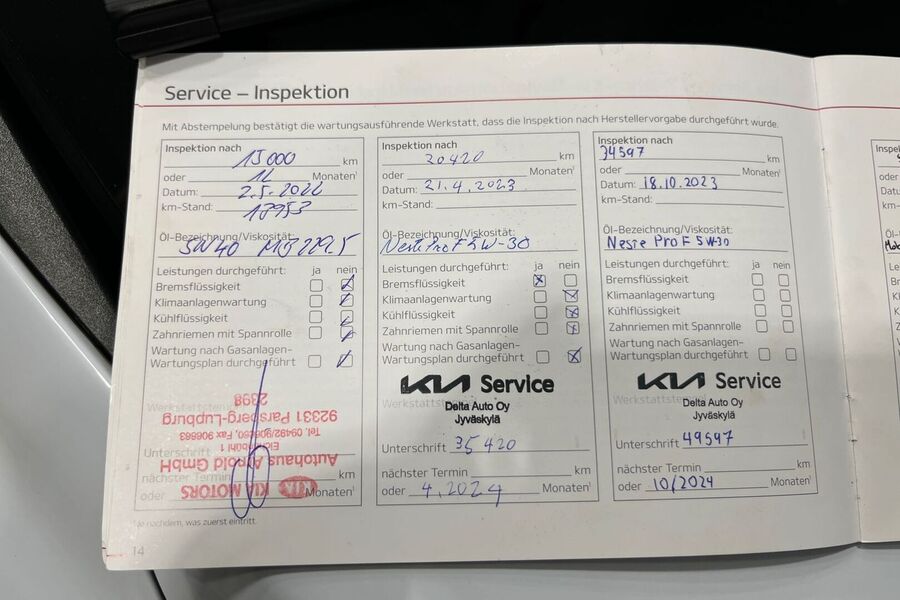 Service – Inspektion
Mit Abstempelung bestätigt die wartungsausführende Werkstatt, dass die Inspektion nach Herstellervorgabe durchgeführt wurde.
Inspektion nach
15000 km
oder 12 Monaten¹
Datum: 2.5.2022
km-Stand: 18953
Öl-Bezeichnung/Viskosität:
5W40 MB 229.5
Leistungen durchgeführt: ja nein
Bremsflüssigkeit
Klimaanlagenwartung
Kühlflüssigkeit
Zahnriemen mit Spannrolle
Wartung nach Gasanlagen-
Wartungsplan durchgeführt
KIA MOTORS
Autohaus Arnold GmbH
92331 Parsberg-Lupburg
2398
km
oder Monaten¹
Inspektion nach
20420 km
oder Monaten¹
Datum: 21.4.2023
km-Stand:
Öl-Bezeichnung/Viskosität:
Neste Pro F 5W-30
Leistungen durchgeführt: ja nein
Bremsflüssigkeit
Klimaanlagenwartung
Kühlflüssigkeit
Zahnriemen mit Spannrolle
Wartung nach Gasanlagen-
Wartungsplan durchgeführt
KIA Service
Delta Auto Oy
Jyväskylä
Unterschrift 35 420
nächster Termin km
oder 4.2024 Monaten¹
Inspektion nach
34597 km
oder Monaten¹
Datum: 18.10.2023
km-Stand:
Öl-Bezeichnung/Viskosität:
Neste Pro F 5W30
Leistungen durchgeführt: ja nein
Bremsflüssigkeit
Klimaanlagenwartung
Kühlflüssigkeit
Zahnriemen mit Spannrolle
Wartung nach Gasanlagen-
Wartungsplan durchgeführt
KIA Service
Delta Auto Oy
Jyväskylä
Unterschrift 49597
nächster Termin km
oder 10/2024 Monaten¹
¹Je nachdem, was zuerst eintritt.
14